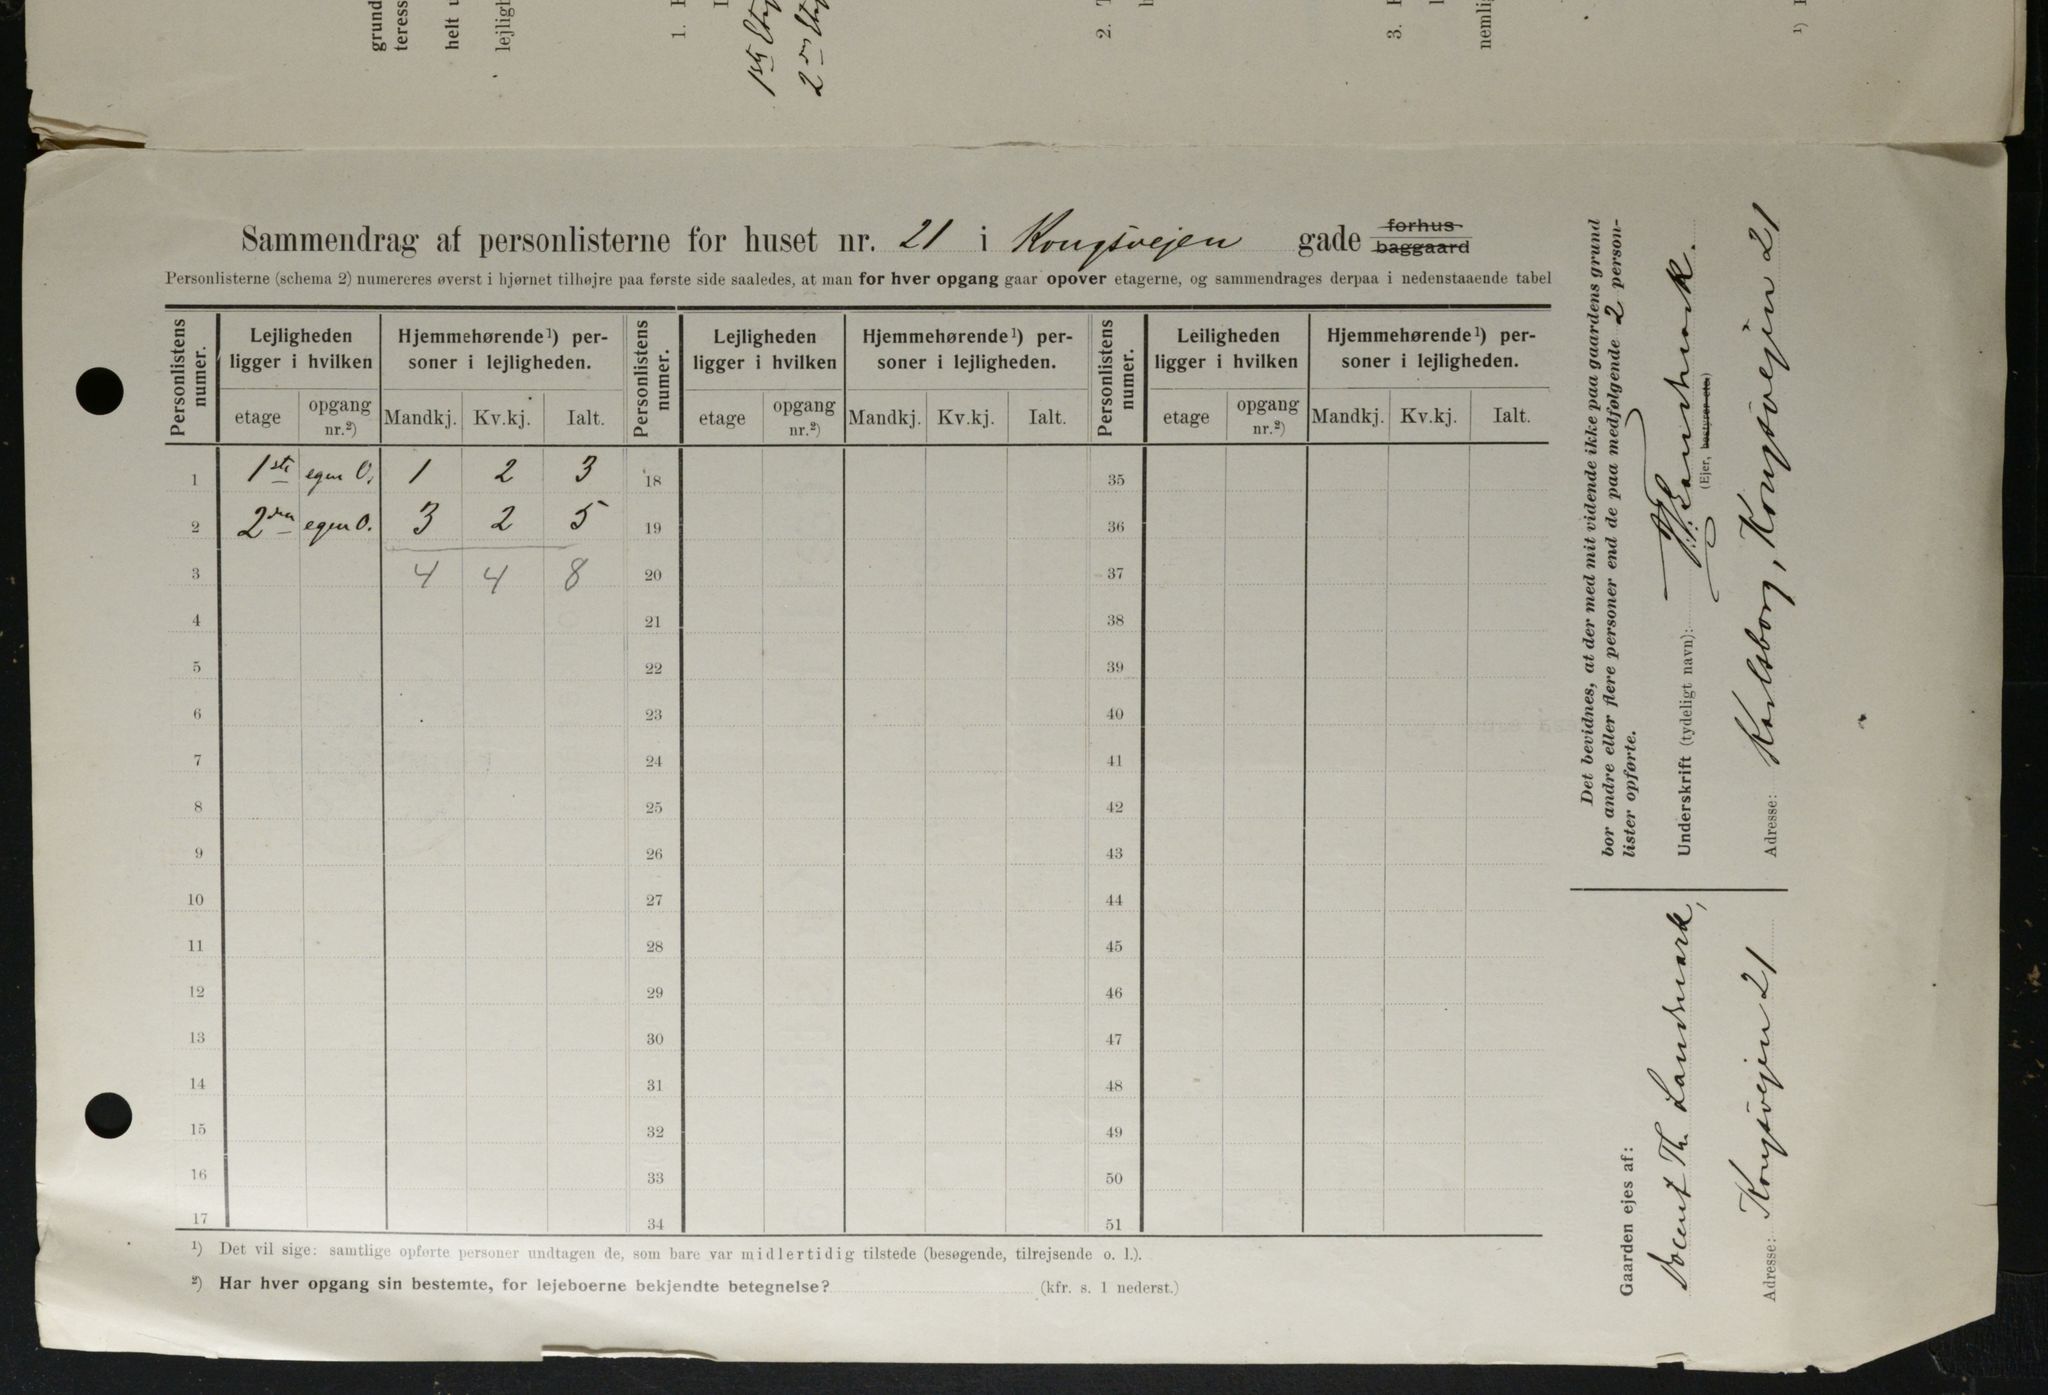 grund
teress
helt u
lejligh
1. F
1ste Etag
2den Etag
2. T
3. H
nemlig
Sammendrag af personlisterne for huset nr. 21 i Kongsvejen gade forhus baggaard
Personlisterne (schema 2) numereres øverst i hjørnet tilhøjre paa første side saaledes, at man for hver opgang gaar opover etagerne, og sammendrages derpaa i nedenstaaende tabel
Personlistens numer. Lejligheden ligger i hvilken Hjemmehørende¹) personer i lejligheden. Personlistens numer. Lejligheden ligger i hvilken Hjemmehørende¹) personer i lejligheden. Personlistens numer. Leiligheden ligger i hvilken Hjemmehørende¹) personer i lejligheden.
etage opgang nr.²) Mandkj. Kv.kj. Ialt. etage opgang nr.²) Mandkj. Kv.kj. Ialt. etage opgang nr.²) Mandkj. Kv.kj. Ialt.
1 1ste egen O. 1 2 3 18 35
2 2den egen O. 3 2 5 19 36
3 4 4 8 20 37
4 21 38
5 22 39
6 23 40
7 24 41
8 25 42
9 26 43
10 27 44
11 28 45
12 29 46
13 30 47
14 31 48
15 32 49
16 33 50
17 34 51
¹) Det vil sige: samtlige opførte personer undtagen de, som bare var midlertidig tilstede (besøgende, tilrejsende o. l.).
²) Har hver opgang sin bestemte, for lejeboerne bekjendte betegnelse? (kfr. s. 1 nederst.)
Det bevidnes, at der med mit vidende ikke paa gaardens grund
bor andre eller flere personer end de paa medfølgende 2 person-
lister opførte.
Underskrift (tydeligt navn): Th. Landmark.
(Ejer, bestyrer etc.)
Adresse: Karlsborg, Kongsvejen 21
Gaarden ejes af:
Docent Th. Landmark,
Adresse: Kongsvejen 21